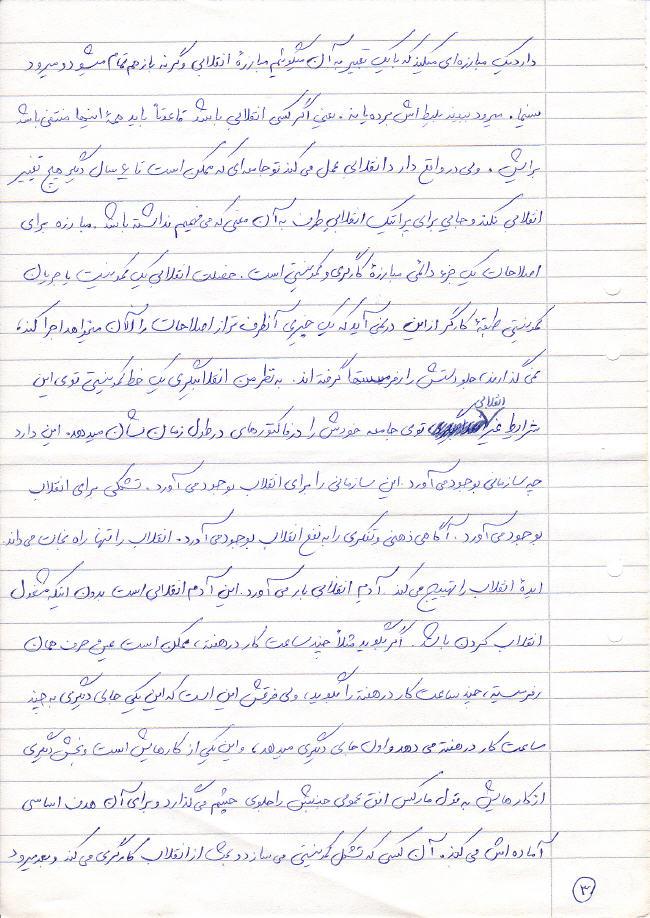 دارد یک مبارزه‌ای میکند که با یک تغییر به آن میگوئیم مبارزهٔ انقلابی وگرنه باز هم تمام میشود و میرود
سینما. میرود ببیند بلیط‌اش برده یا نه. یعنی اگر کسی انقلابی باشد قاعدتاً باید همهٔ اینها منتفی باشد
برایش. ولی در واقع دارد انقلابی عمل می کند تو جامعه‌ای که ممکن است تا ۶ سال دیگر هیچ تغییر
انقلابی نکند و جایی برای پراتیک انقلابی طرف به آن معنی که می فهمیم نداشته باشد. مبارزه برای
اصلاحات یک جزء دائمی مبارزهٔ کارگری و کمونیستی است. خصلت انقلابی یک کمونیست یا جریان
کمونیستی طبقهٔ کارگر از این در نمی آید که یک چیزی آنطرف تر از اصلاحات را الآن میخواهد اجرا کند،
نمی گذارند، جلو کشش را رفرمیستها گرفته اند. به نظر من انقلابیگری یک خط کمونیستی توی این
شرایط غیر انقلابی توی جامعه خودش را در فاکتورهای در طول زمان نشان میدهد. این دارد
چه سازمانی بوجود می آورد. این سازمانی را برای انقلاب بوجود می آورد. تشکلی برای انقلاب
بوجود می آورد. آگاهی ذهنی و تفکری را به نفع انقلاب بوجود می آورد. انقلاب را تنها راه نجات می داند.
ایدهٔ انقلاب را تهییج می کند. آدم انقلابی بار می آورد. این آدم انقلابی است بدون اینکه مشغول
انقلاب کردن باشد. اگر بگوید مثلاً چند ساعت کار در هفته، ممکن است عین حرف همان
رفرمیسته، چند ساعت کار در هفته را بگوید، ولی فرقش این است که این یکی جای دیگری به چند
ساعت کار در هفته می دهد و اول جای دیگری میدهد، و این یکی از کارهایش است و بخش دیگری
از کارهایش به قول مارکس افق عمومی جنبش را جلوی چشم می گذارد و برای آن هدف اساسی
آماده اش می کند. آن کسی که تشکل کمونیستی می سازد و بحث از انقلاب کارگری می کند و بعد میرود
۳